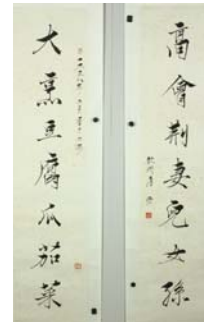 高會荊妻兒女孫
大烹豆腐瓜茄菜